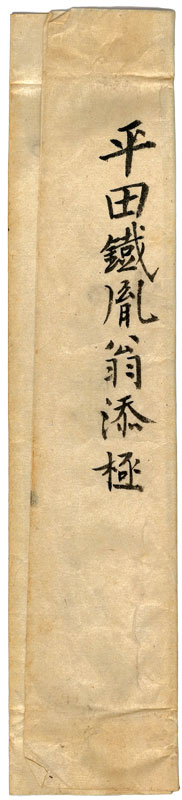 平田鐵胤翁添極